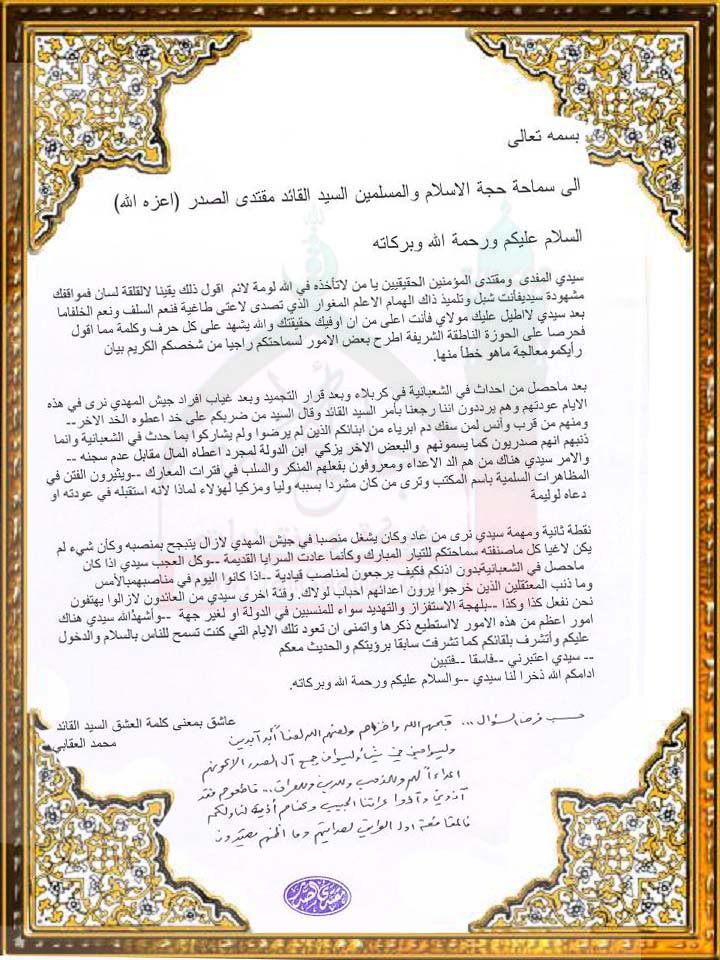 بسمه تعالى
الى سماحة حجة الاسلام والمسلمين السيد القائد مقتدى الصدر (اعزه الله)
السلام عليكم ورحمة الله وبركاته
سيدي المفدى ومقتدى المؤمنين الحقيقيين يا من لاتأخذه في الله لومة لائم اقول ذلك يقينا لالقلقة لسان فمواقفك
مشهودة سيديفأنت شبل وتلميذ ذاك الهمام الاعلم المغوار الذي تصدى لاعتى طاغية فنعم السلف ونعم الخلفاما
بعد سيدي لااطيل عليك مولاي فأنت اعلى من ان اوفيك حقيقتك والله يشهد على كل حرف وكلمة مما اقول
فحرصا على الحوزة الناطقة الشريفة اطرح بعض الامور لسماحتكم راجيا من شخصكم الكريم بيان
رأيكمومعالجة ماهو خطأ منها.
بعد ماحصل من احداث في الشعبانية في كربلاء وبعد قرار التجميد وبعد غياب افراد جيش المهدي نرى في هذه
الايام عودتهم وهم يرددون اننا رجعنا بأمر السيد القائد وقال السيد من ضربكم على خد اعطوه الخد الاخر--
ومنهم من قرب وأنس لمن سفك دم ابرياء من ابنائكم الذين لم يرضوا ولم يشاركوا بما حدث في الشعبانية وانما
ذنبهم انهم صدريون كما يسمونهم والبعض الاخر يزكي ابن الدولة لمجرد اعطاه المال مقابل عدم سجنه --
والامر سيدي هناك من هم الد الاعداء ومعروفون بفعلهم المنكر والسلب في فترات المعارك --ويثيرون الفتن في
المظاهرات السلمية باسم المكتب وترى من كان مشردا بسببه وليا ومزكيا لهؤلاء لماذا لانه استقبله في عودته او
دعاه لوليمة
نقطة ثانية ومهمة سيدي نرى من عاد وكان يشغل منصبا في جيش المهدي لازال يتبجح بمنصبه وكأن شيء لم
يكن لاغيا كل ماصنفته سماحتكم للتيار المبارك وكأنما عادت السرايا القديمة --وكل العجب سيدي اذا كان
ماحصل في الشعبانيةبدون اذنكم فكيف يرجعون لمناصب قيادية --اذا كانوا اليوم في مناصبهمبالأمس
وما ذنب المعتقلين الذين خرجوا يرون اعدائهم احباب لولاك. وفئة اخرى سيدي من العائدون لازالوا يهتفون
نحن نفعل كذا وكذا --بلهجة الاستفزاز والتهديد سواء للمنتسبين في الدولة او لغير جهة --وأشهدالله سيدي هناك
امور اعظم من هذه الامور لااستطيع ذكرها واتمنى ان تعود تلك الايام التي كنت تسمح للناس بالسلام والدخول
عليكم وأتشرف بلقائكم كما تشرفت سابقا برؤيتكم والحديث معكم
-- سيدي اعتبرني --فاسقا --فتبين
ادامكم الله ذخرا لنا سيدي --والسلام عليكم ورحمة الله وبركاته.
عاشق بمعنى كلمة العشق السيد القائد
محمد العقابي
حسب فرض السؤال ... قبحهم الله واخزاهم ولعنهم الله لعناً أبد آبدين
وليسوا مني في شيء وليسوا من جمع آل الصدر
اعداءاً لهم وللمذهب وللدين وللعراق ... فقد
آذوني وآذوا عراقنا الحبيب
مقتدى الصدر